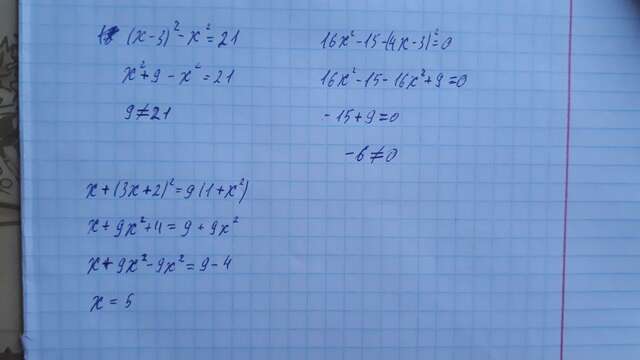 1) (x-3)²-x²=21
x²+9-x²=21
9≠21
16x²-15-(4x-3)²=0
16x²-15-16x²+9=0
-15+9=0
-6≠0
x+(3x+2)²=9(1+x²)
x+9x²+4=9+9x²
x+9x²-9x²=9-4
x=5